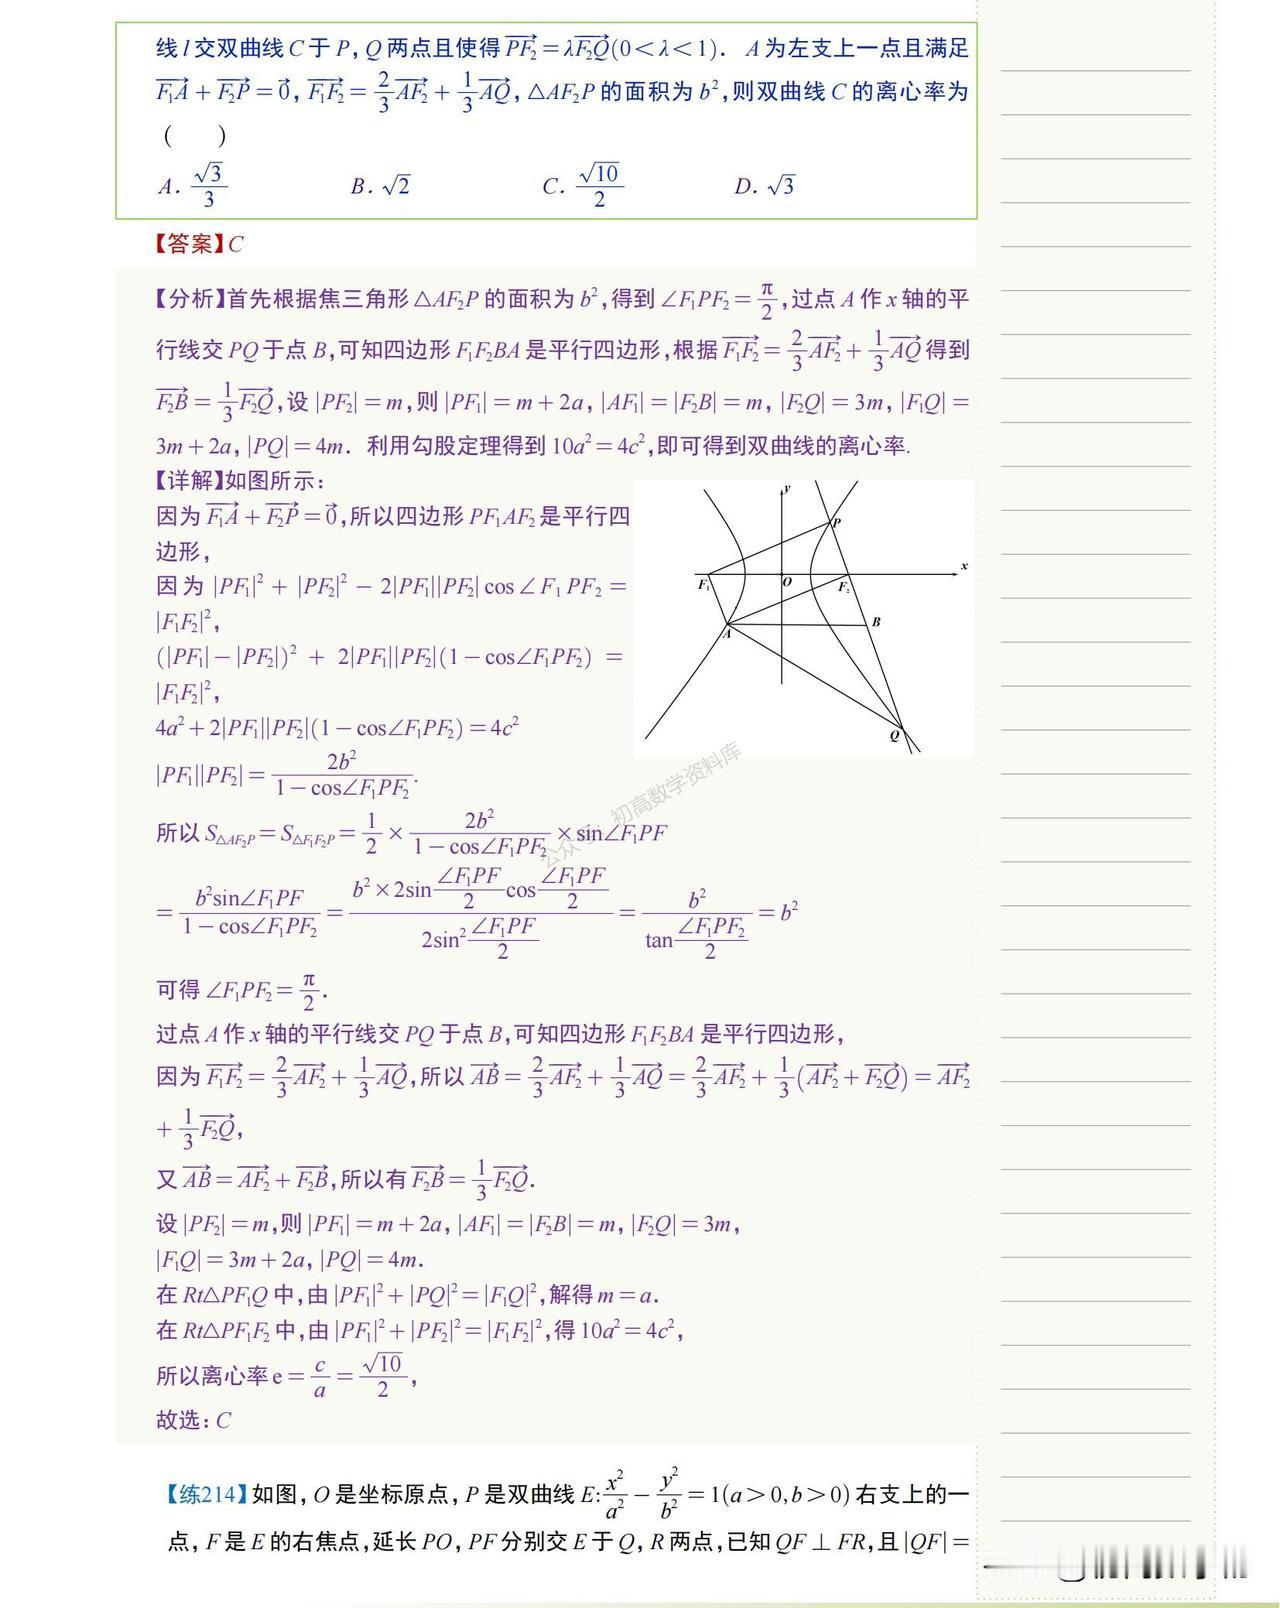 线 l 交双曲线 C 于 P, Q 两点且使得 $\overrightarrow{PF_2}=\lambda\overrightarrow{F_2Q}(0<\lambda<1)$. A 为左支上一点且满足
$\overrightarrow{F_1A}+\overrightarrow{F_2P}=\vec{0}$, $\overrightarrow{F_1F_2}=\frac{2}{3}\overrightarrow{AF_2}+\frac{1}{3}\overrightarrow{AQ}$, △AF₂P 的面积为 b², 则双曲线 C 的离心率为
(    )
A. $\frac{\sqrt{3}}{3}$ B. $\sqrt{2}$ C. $\frac{\sqrt{10}}{2}$ D. $\sqrt{3}$
【答案】C
【分析】首先根据焦三角形 △AF₂P 的面积为 b², 得到 ∠F₁PF₂ = $\frac{π}{2}$, 过点 A 作 x 轴的平
行线交 PQ 于点 B, 可知四边形 F₁F₂BA 是平行四边形, 根据 $\overrightarrow{F_1F_2}=\frac{2}{3}\overrightarrow{AF_2}+\frac{1}{3}\overrightarrow{AQ}$ 得到
$\overrightarrow{F_2B}=\frac{1}{3}\overrightarrow{F_2Q}$, 设 |PF₂| = m, 则 |PF₁| = m + 2a, |AF₁| = |F₂B| = m, |F₂Q| = 3m, |F₁Q| =
3m + 2a, |PQ| = 4m. 利用勾股定理得到 10a² = 4c², 即可得到双曲线的离心率.
【详解】如图所示:
因为 $\overrightarrow{F_1A}+\overrightarrow{F_2P}=\vec{0}$, 所以四边形 PF₁AF₂ 是平行四
边形,
因为 |PF₁|² + |PF₂|² − 2|PF₁||PF₂| cos∠F₁PF₂ =
|F₁F₂|²,
(|PF₁| − |PF₂|)² + 2|PF₁||PF₂|(1 − cos∠F₁PF₂) =
|F₁F₂|²,
4a² + 2|PF₁||PF₂|(1 − cos∠F₁PF₂) = 4c²
|PF₁||PF₂| = $\frac{2b^2}{1-\cos∠F_1PF_2}$.
y
P
x
F₁
O
F₂
B
A
Q
公众号:初高数学资料库
所以 $S_{△AF_2P}=S_{△F_1F_2P}=\frac{1}{2}×\frac{2b^2}{1-\cos∠F_1PF_2}×\sin∠F_1PF$
$=\frac{b^2\sin∠F_1PF}{1-\cos∠F_1PF_2}=\frac{b^2×2\sin\frac{∠F_1PF}{2}\cos\frac{∠F_1PF}{2}}{2\sin^2\frac{∠F_1PF}{2}}=\frac{b^2}{\tan\frac{∠F_1PF_2}{2}}=b^2$
可得 ∠F₁PF₂ = $\frac{π}{2}$.
过点 A 作 x 轴的平行线交 PQ 于点 B, 可知四边形 F₁F₂BA 是平行四边形,
因为 $\overrightarrow{F_1F_2}=\frac{2}{3}\overrightarrow{AF_2}+\frac{1}{3}\overrightarrow{AQ}$, 所以 $\overrightarrow{AB}=\frac{2}{3}\overrightarrow{AF_2}+\frac{1}{3}\overrightarrow{AQ}=\frac{2}{3}\overrightarrow{AF_2}+\frac{1}{3}(\overrightarrow{AF_2}+\overrightarrow{F_2Q})=\overrightarrow{AF_2}$
$+\frac{1}{3}\overrightarrow{F_2Q}$,
又 $\overrightarrow{AB}=\overrightarrow{AF_2}+\overrightarrow{F_2B}$, 所以有 $\overrightarrow{F_2B}=\frac{1}{3}\overrightarrow{F_2Q}$.
设 |PF₂| = m, 则 |PF₁| = m + 2a, |AF₁| = |F₂B| = m, |F₂Q| = 3m,
|F₁Q| = 3m + 2a, |PQ| = 4m.
在 Rt△PF₁Q 中, 由 |PF₁|² + |PQ|² = |F₁Q|², 解得 m = a.
在 Rt△PF₁F₂ 中, 由 |PF₁|² + |PF₂|² = |F₁F₂|², 得 10a² = 4c²,
所以离心率 e = $\frac{c}{a}=\frac{\sqrt{10}}{2}$,
故选: C
【练214】如图, O 是坐标原点, P 是双曲线 E: $\frac{x^2}{a^2}-\frac{y^2}{b^2}=1(a>0,b>0)$ 右支上的一
点, F 是 E 的右焦点, 延长 PO, PF 分别交 E 于 Q, R 两点, 已知 QF ⊥ FR, 且 |QF| =